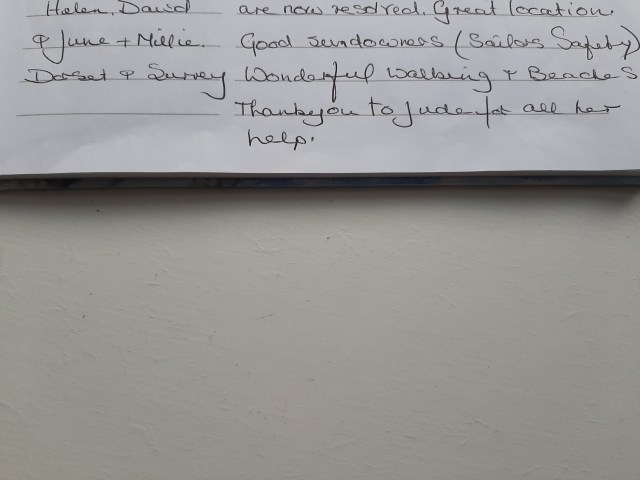 Helen, David are now resolved. Great location.
& June + Millie. Good sundowners (Sailors Safety)
Dorset & Surrey Wonderful walking & Beaches
Thankyou to Jude for all her
help.